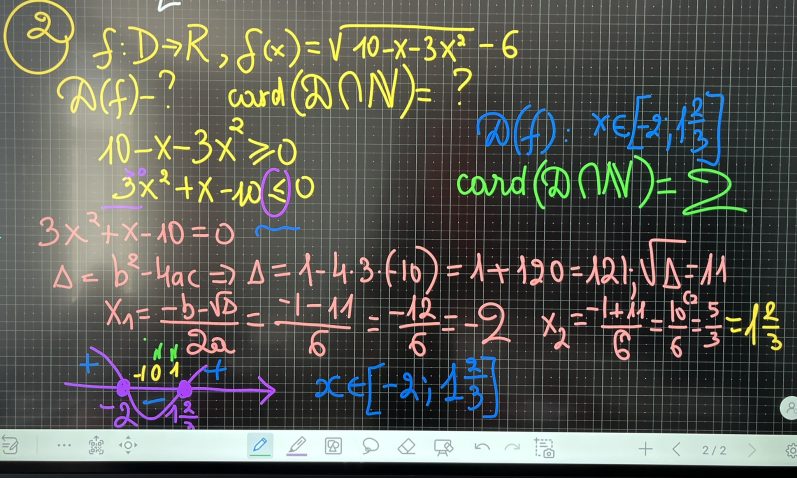 ② f: D→R, f(x) = √(10-x-3x²) - 6
D(f)-? card(D∩N) = ?
10-x-3x² ≥ 0
D(f): x∈[-2; 1 2/3]
3x²+x-10 ≤ 0
card(D∩N) = 2
3x²+x-10 = 0
Δ = b²-4ac ⇒ Δ = 1-4·3·(-10) = 1+120 = 121; √Δ = 11
x₁ = (-b-√Δ)/2a = (-1-11)/6 = -12/6 = -2 x₂ = (-1+11)/6 = 10/6 = 5/3 = 1 2/3
N N
+ -1 0 1 +
x∈[-2; 1 2/3]
-2 - 1 2/3
2/2